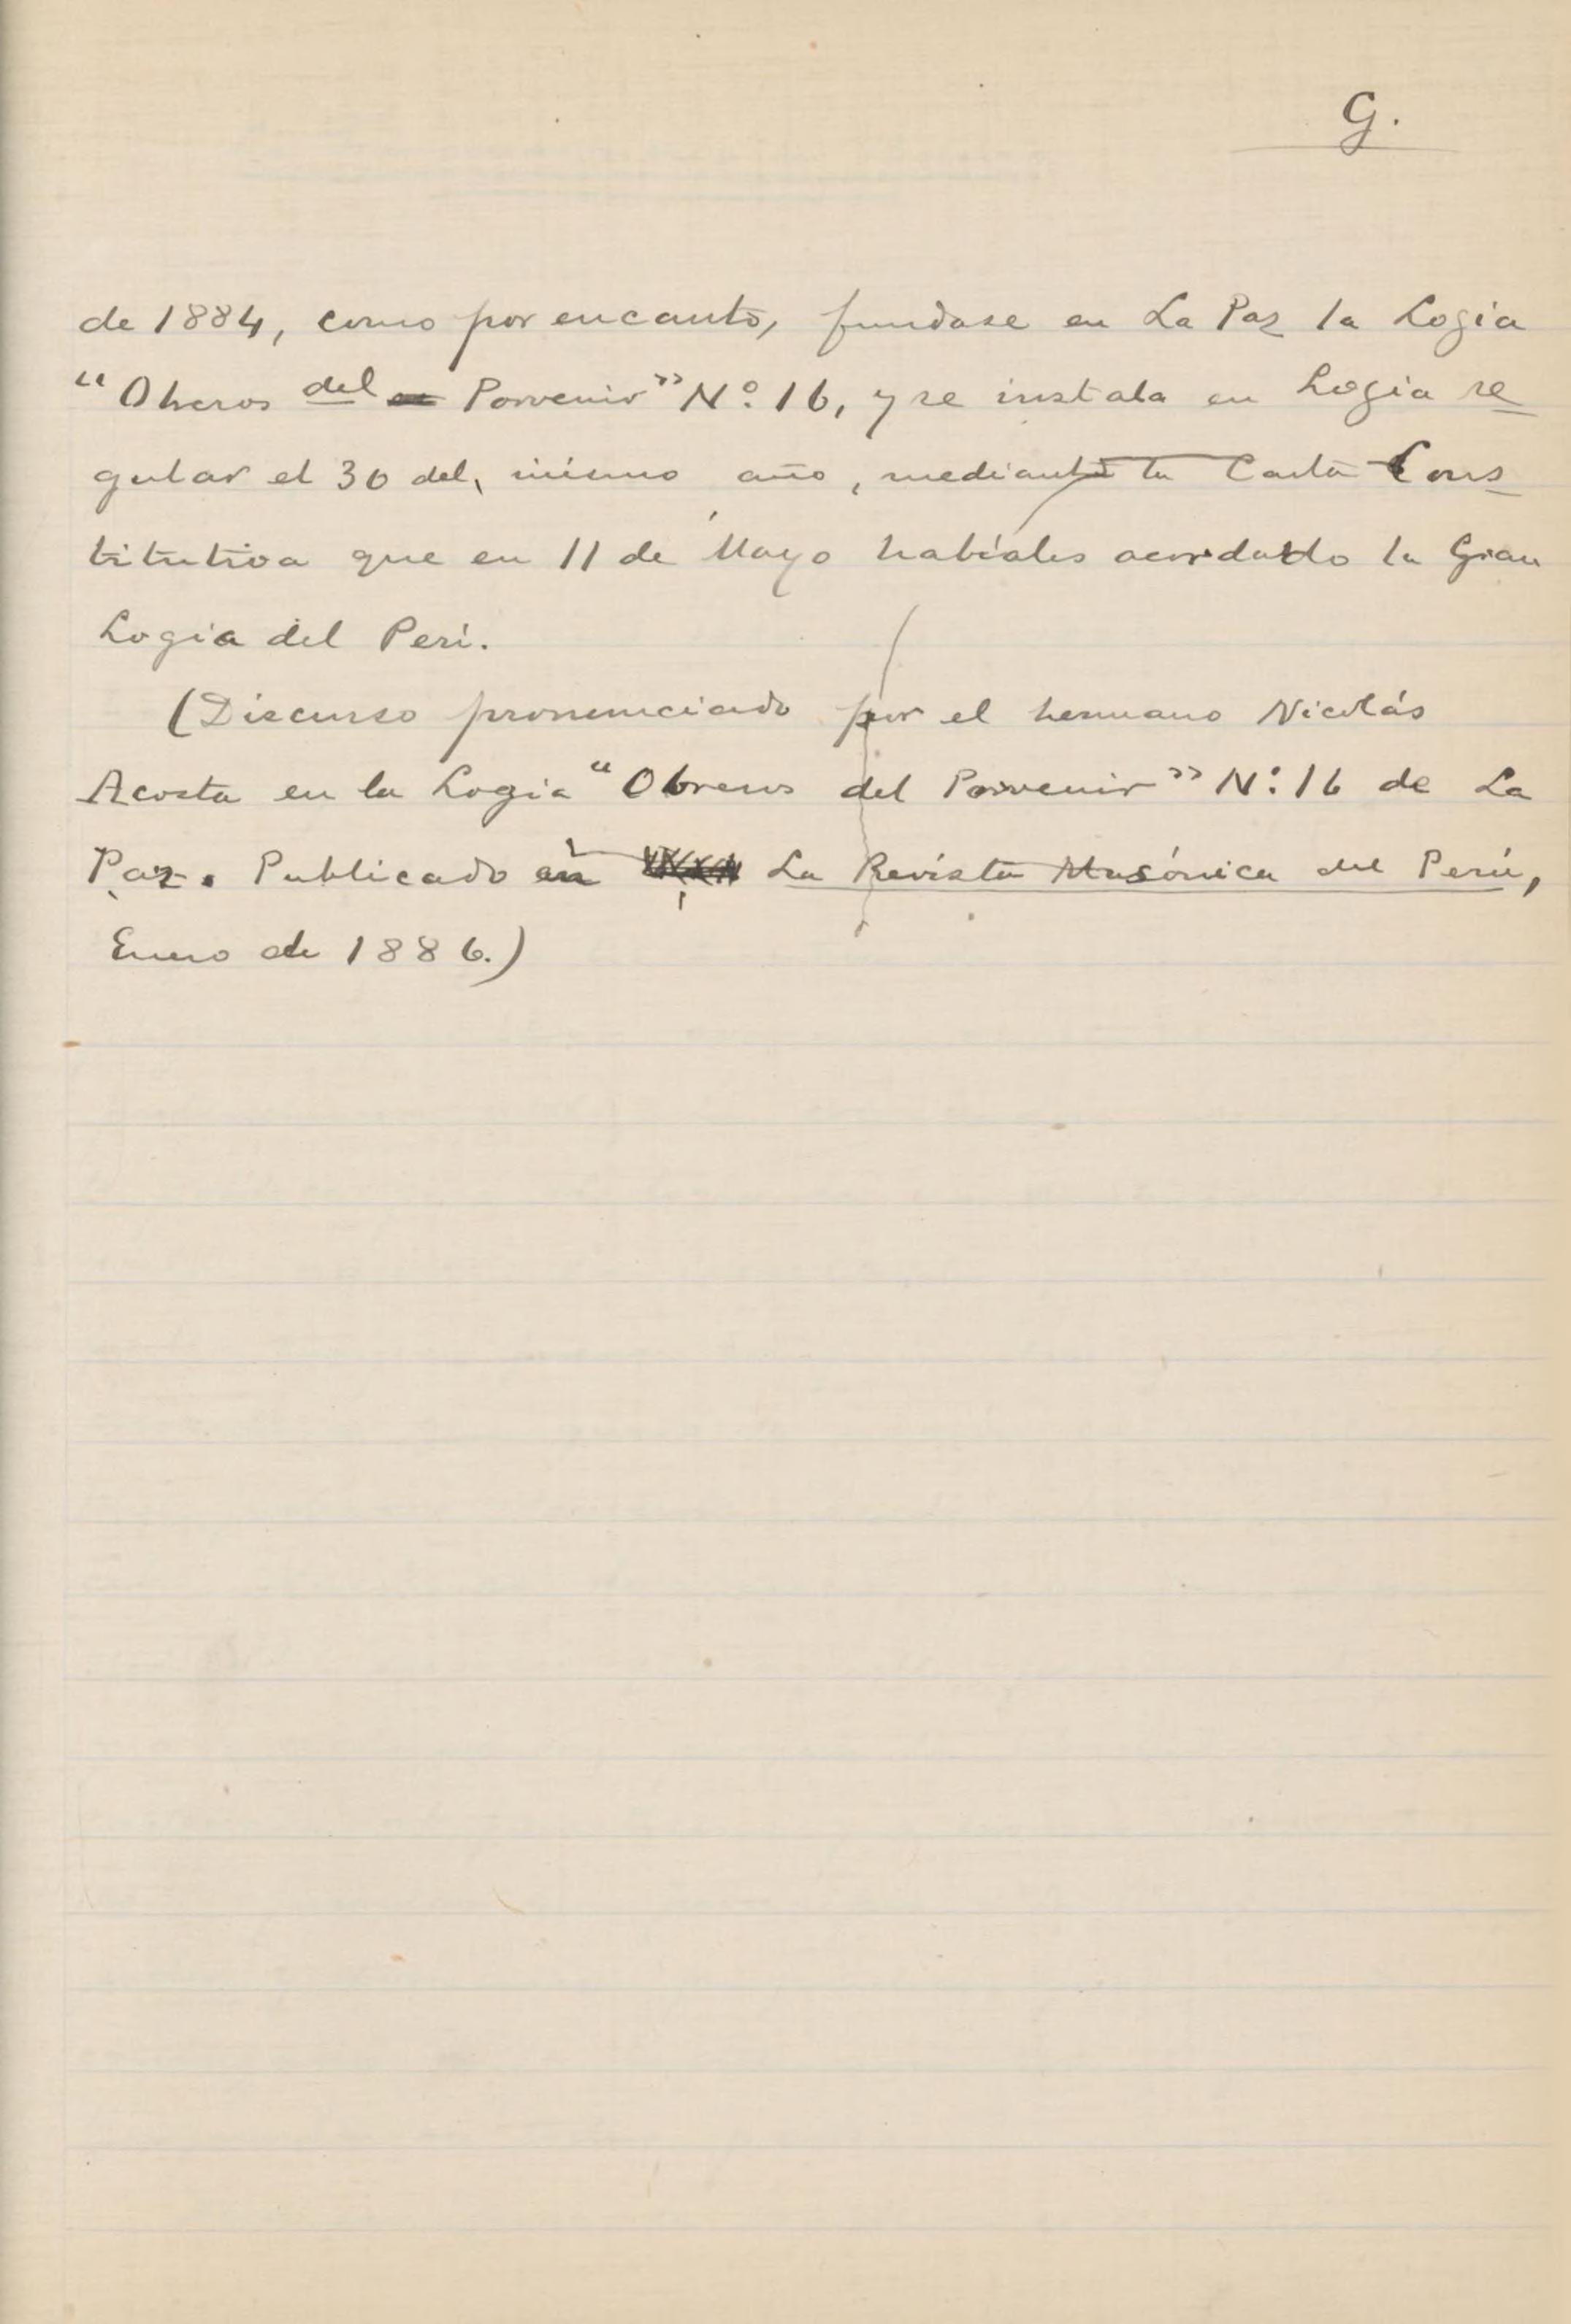 G.
de 1884, como por encanto, fundase en La Paz la Logia
“Obreros del Porvenir” Nº 16, y se instala en Logia re
gular el 30 del mismo año, mediante la Carta Cons
titutiva que en 11 de Mayo habiales acordado la Gran
Logia del Perú.
(Discurso pronunciado por el hermano Nicolás
Acosta en la Logia “Obreros del Porvenir” Nº 16 de La
Paz. Publicado en La Revista Masónica del Perú,
Enero de 1886.)